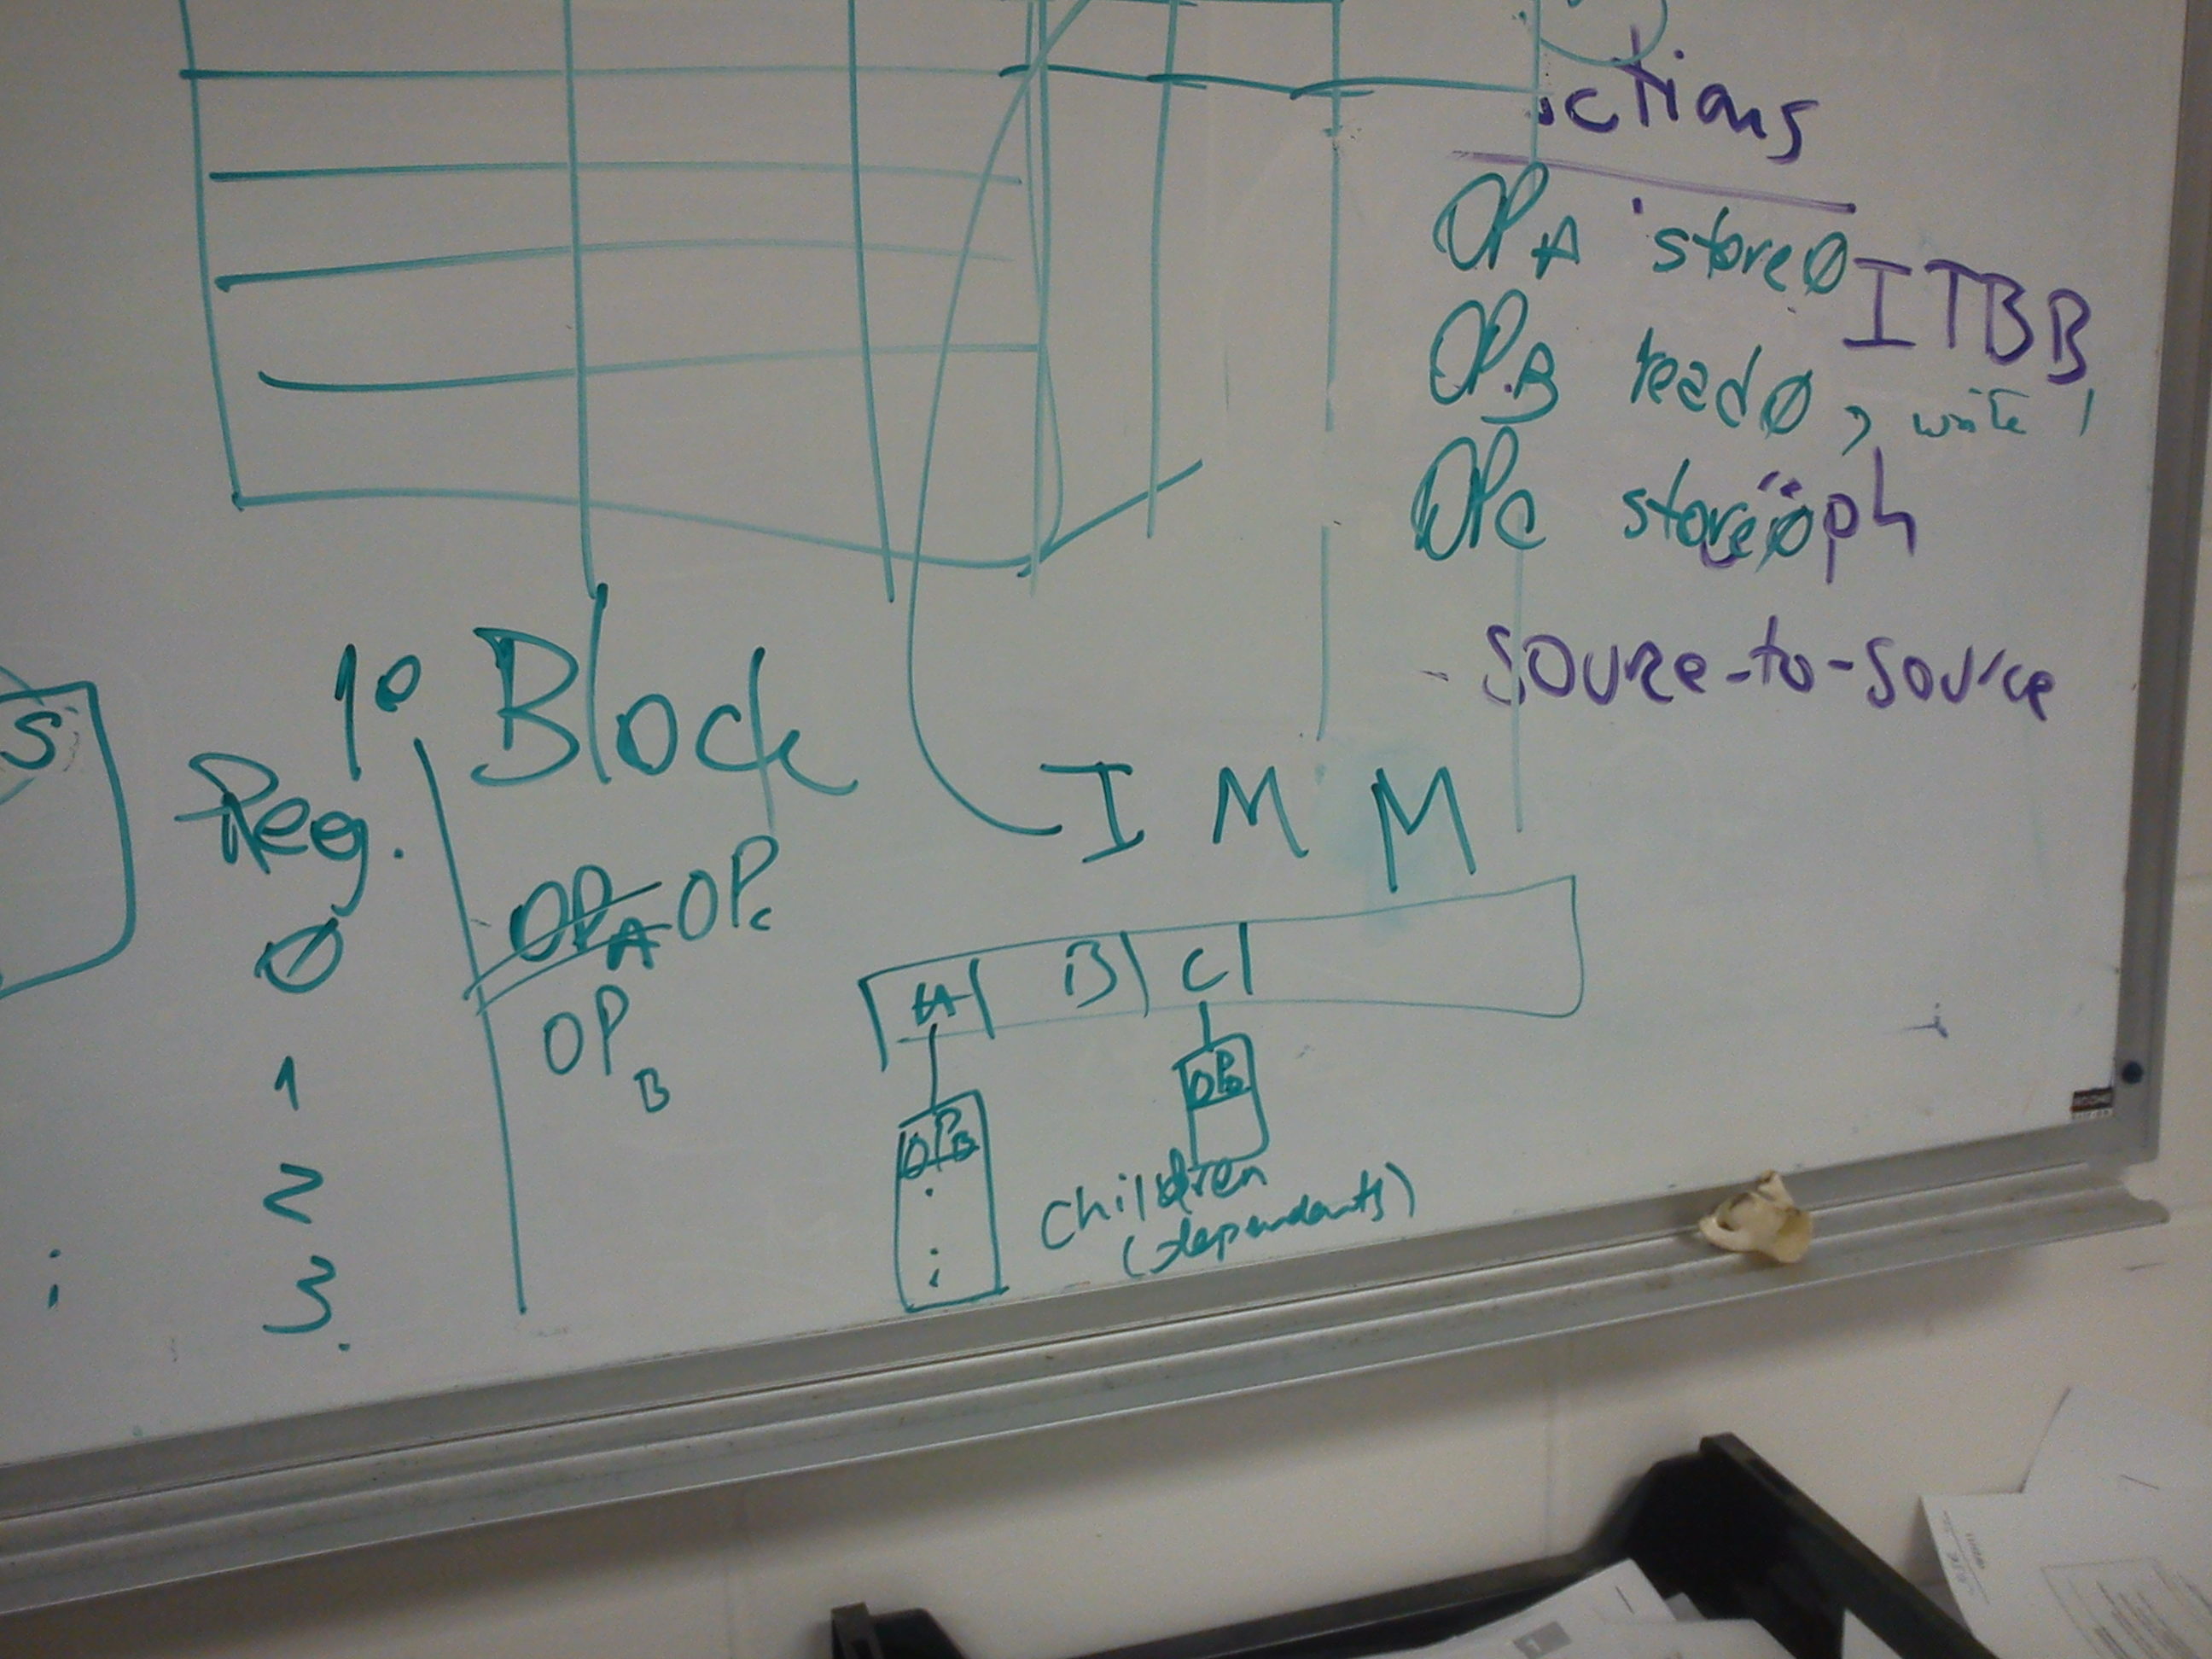 ctions
OPA store Ø
ITBB
OPB read Ø, write 1
OPC store Ø
ph
- source-to-source
S
1º Block
Reg.
I M M
Ø OPA OPC
1 OPB
2
3
A B C
OPB
OPB
children
(dependants)